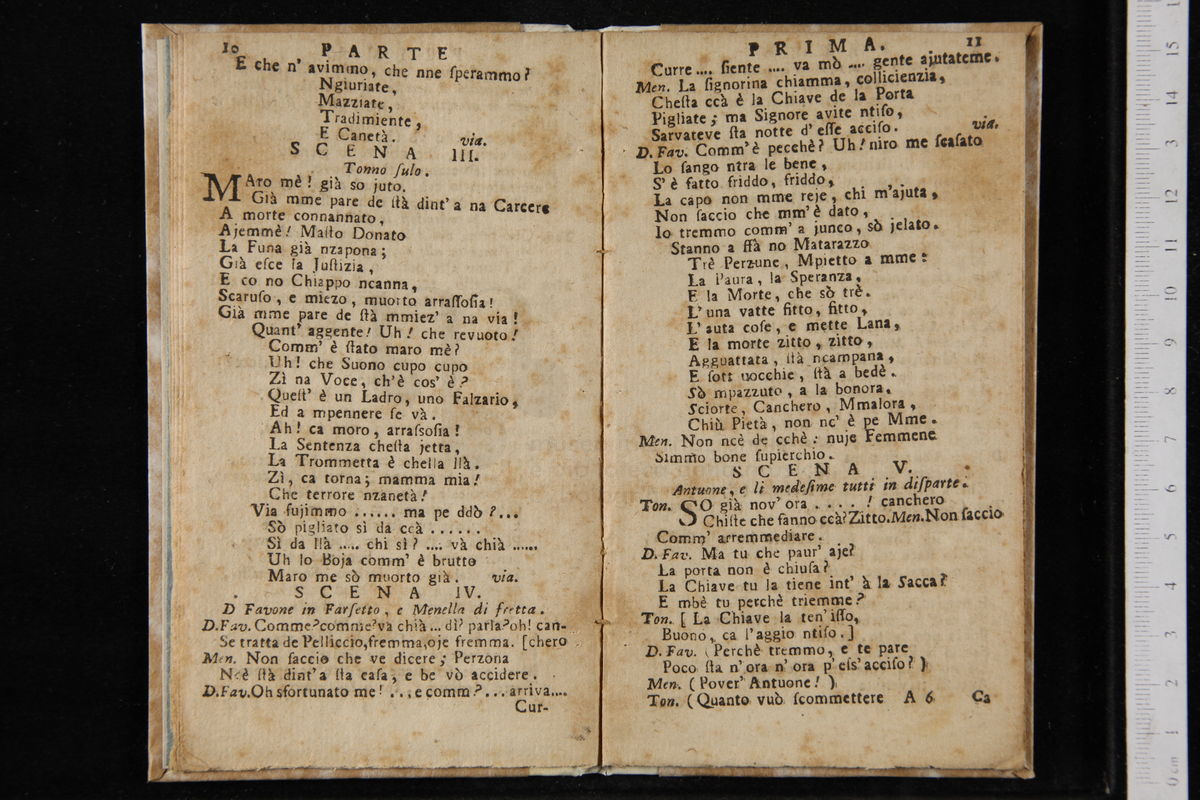 10 PARTE
E che n' avimmo, che nne ſperammo?
Ngiuriate,
Mazziate,
Tradimiente,
E Canetà. via.
SCENA III.
Tonno ſulo.
MAro mè! già so juto.
Già mme pare de ſtà dint' a na Carcere
A morte connannato,
Ajemmè! Maſto Donato
La Funa già nzapona;
Già eſce la Juſtizia,
E co no Chiappo ncanna,
Scaruſo, e miezo, muorto arraſſoſia!
Già mme pare de ſtà mmiez' a na via!
Quant' aggente! Uh! che revuoto!
Comm' è ſtato maro mè?
Uh! che Suono cupo cupo
Zì na Voce, ch'è cos' è?
Queſt' è un Ladro, uno Falzario,
Ed a mpennere ſe và.
Ah! ca moro, arraſsoſia!
La Sentenza cheſta jetta,
La Trommetta è chella llà.
Zì, ca torna; mamma mia!
Che terrore nzanetà!
Via fujimmo ...... ma pe ddò?...
Sò pigliato sì da ccà ......
Sì da llà ..... chi sì? .... và chià ......
Uh lo Boja comm' è brutto
Maro me sò muorto già. via.
SCENA IV.
D Favone in Farſetto, e Menella di fretta.
D.Fav. Comme?comme?và chià ... dì? parla?oh! can-
Se tratta de Pelliccio,fremma,oje fremma. [chero
Men. Non ſaccio che ve dicere; Perzona
Ncè ſtà dint'a ſta caſa, e be' vò accidere.
D.Fav.Oh sfortunato me! ....e comm?... arriva....
Cur-
PRIMA. 11
Curre.... ſiente .... va mò .... gente ajutateme.
Men. La ſignorina chiamma, collicienzia,
Cheſta ccà è la Chiave de la Porta
Pigliate; ma Signore avite ntiſo,
Sarvateve ſta notte d' eſſe acciſo. via.
D. Fav. Comm'è pecchè? Uh! niro me ſcaſato
Lo ſango ntra le bene,
S' è fatto friddo, friddo,
La capo non mme reje, chi m'ajuta,
Non ſaccio che mm'è dato,
Io tremmo comm' a junco, sò jelato.
Stanno a ffà no Matarazzo
Trè Perzune, Mpietto a mme:
La Paura, la Speranza,
E la Morte, che sò trè.
L' una vatte fitto, fitto,
L' auta coſe, e mette Lana,
E la morte zitto, zitto,
Agguattata, ſtà ncampana,
E ſott uocchie, ſtà a bedè.
Sò mpazzuto, a la bonora.
Sciorte, Canchero, Mmalora,
Chiù Pietà, non nc' è pe Mme.
Men. Non ncè de cchè: nuje Femmene
Simmo bone ſupierchio.
SCENA V.
Antuone, e li medeſime tutti in diſparte.
Ton. SO già nov' ora ..... ! canchero
Chiſte che fanno ccà? Zitto.Men.Non ſaccio
Comm' arremmediare.
D. Fav. Ma tu che paur' aje?
La porta non è chiuſa?
La Chiave tu la tiene int' à la Sacca?
E mbè tu perchè triemme?
Ton. [ La Chiave la ten' iſſo,
Buono, ca l'aggio ntiſo.]
D. Fav. (Perchè tremmo, e te pare
Poco ſta n' ora n' ora p' eſs' acciſo? )
Men. (Pover' Antuone! )
Ton. (Quanto vuò ſcommettere A 6 Ca